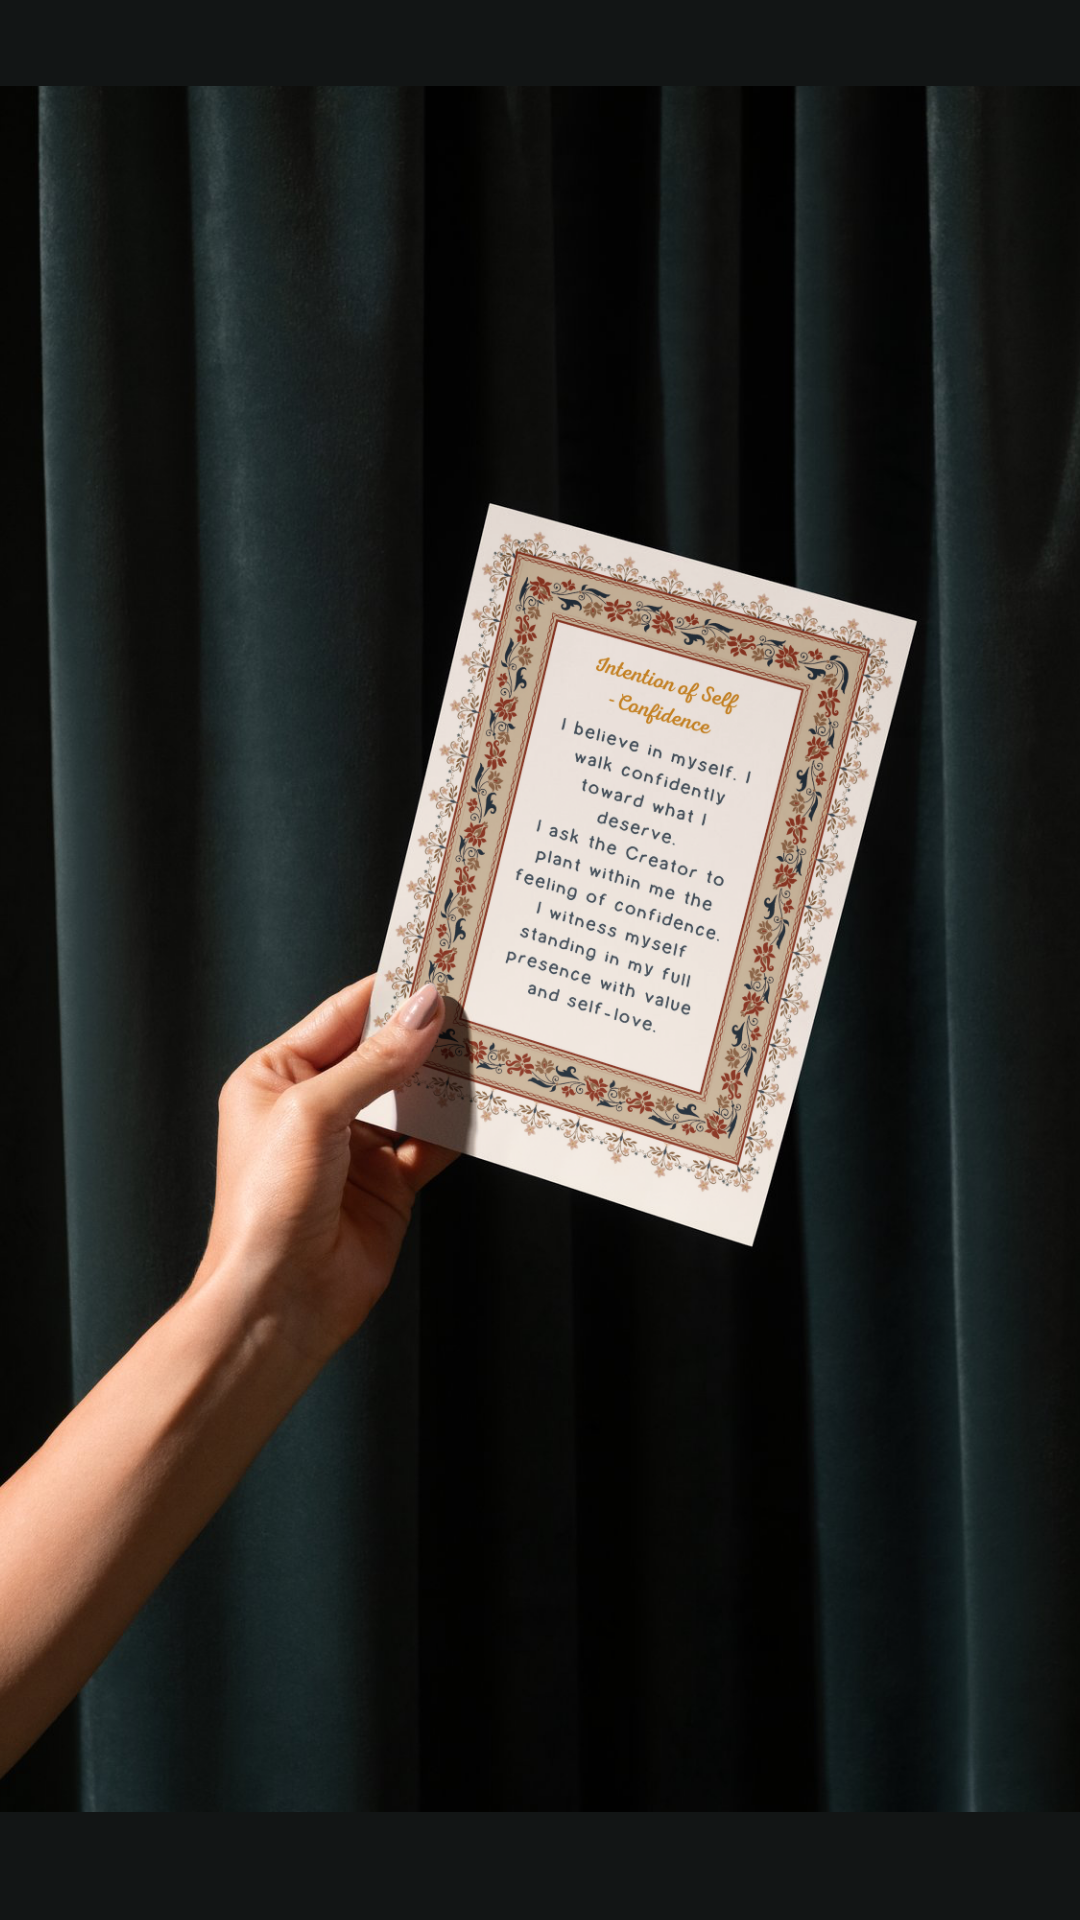 Intention of Self
-Confidence
I believe in myself. I
walk confidently
toward what I
deserve.
I ask the Creator to
plant within me the
feeling of confidence.
I witness myself
standing in my full
presence with value
and self-love.